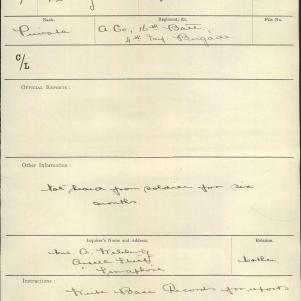 Rank. Regiment, &c. File No.
Private A Co, 16th Batt,
4th Inf. Brigade
C/L
OFFICIAL REPORTS:
Other Information:
Not heard from soldier for six
months.
Inquirer's Name and Address. Relation.
Mrs A.
Street mother
Semaphore
Instructions:
Write Base Records for report